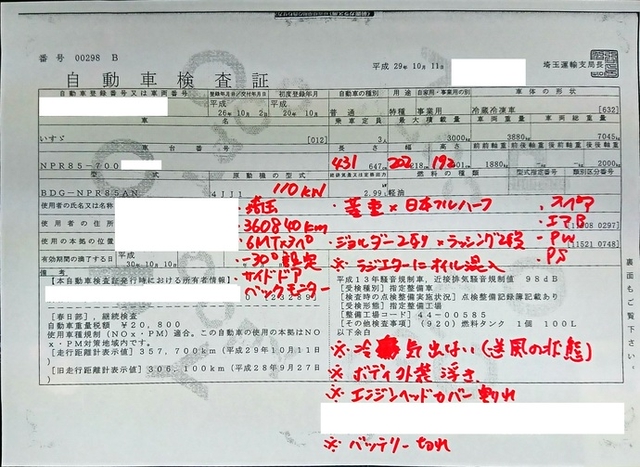 番号 00298 B
平成 29年10月11日
埼玉運輸支局長
自動車検査証
自動車登録番号又は車両番号 登録年月日/交付年月日 初度登録年月 自動車の種別 用途 自家用・事業用の別 車体の形状
平成 26年10月 2日 平成 20年10月 普通 特種 事業用 冷蔵冷凍車 [632]
車名 乗車定員 最大積載量 車両重量 車両総重量
いすゞ [012] 3人 3000kg 3880kg 7045kg
車台番号 長さ 幅 高さ 前前軸重 前後軸重 後前軸重 後後軸重
NPR85-700 431 202 192 1880kg -kg -kg 2000kg
型式 原動機の型式 燃料の種類 型式指定番号 類別区分番号
110KN
BDG-NPR85AN 4JJ1 2.99 軽油
使用者の氏名又は名称 ・埼玉 ・菱重×日本フルハーフ ・スペア
使用者の住所 ・360840km ・エアB
使用の本拠の位置 ・6MT ・ジョルダー2列×ラッシング2段 -PW
有効期間の満了する日 ・-30°設定 ※ラジエターにオイル混入 -PS
平成 30年10月
備考 ・サイドドア
・バックモニター
【本自動車検査証発行時における所有者情報】
平成13年騒音規制車，近接排気騒音規制値 98dB
[受検種別] 指定整備車
[検査時の点検整備実施状況] 点検整備記録簿記載あり
[受検形態] 指定整備工場
[整備工場コード] 44-00585
[その他検査事項] (920) 燃料タンク 1個 100L
以下余白
[春日部]，継続検査
自動車重量税額 ￥20,800
使用車種規制（NOx・PM）適合。この自動車の使用の本拠はNOx・PM対策地域内です。
[走行距離計表示値] 357,700km（平成29年10月11日）
[旧走行距離計表示値] 306,100km（平成28年9月27日）
※冷気出ない(送風の状態)
※ボディ外装浮き
※エンジンヘッドカバー割れ
※バッテリー切れ